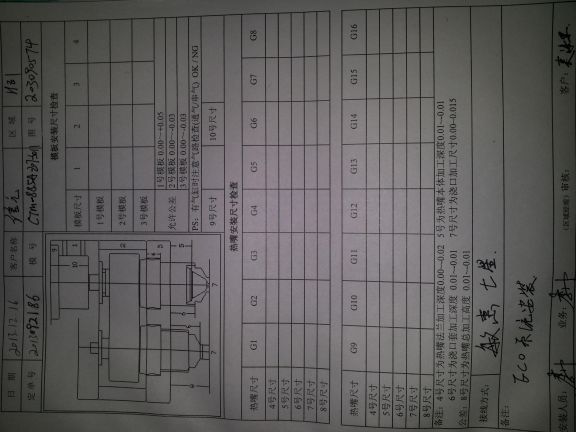 日 期 2013.12.16 客户名称 区 域
定单号 2013092186 模 号 图 号
模板安装尺寸检查
模板尺寸 1 2 3 4
1号模板
2号模板
3号模板
允许公差 1号模板 0.00~+0.05
2号模板 0.00~-0.03
3号模板 0.00~-0.03
PS：有气缸时注意气路检查(通气/串气) OK / NG
9号尺寸 10号尺寸
热嘴安装尺寸检查
热嘴尺寸 G1 G2 G3 G4 G5 G6 G7 G8
4号尺寸
5号尺寸
6号尺寸
7号尺寸
8号尺寸
热嘴尺寸 G9 G10 G11 G12 G13 G14 G15 G16
4号尺寸
5号尺寸
6号尺寸
7号尺寸
8号尺寸
备注：4号尺寸为热嘴法兰加工深度0.00~0.02 5号为热嘴本体加工深度0.01~0.01
6号尺寸为浇口套加工深度 0.01~0.01 7号尺寸为浇口加工尺寸0.00~0.015
公差：8号尺寸为热嘴总加工高度 0.01~0.01
接线方式：
备注：
ECO系统安装
安装人员： 业务： (区域经理) 审核： 客户：